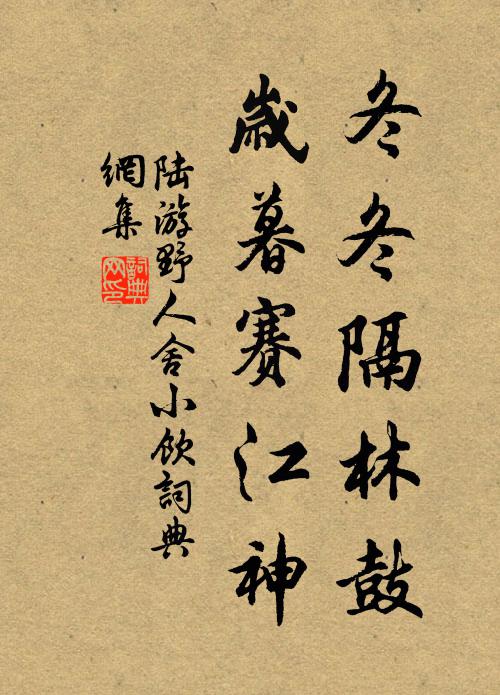 冬冬隔林鼓
歲暮賽江神
陆游野人舍小飲詞典
網集
詞典网印